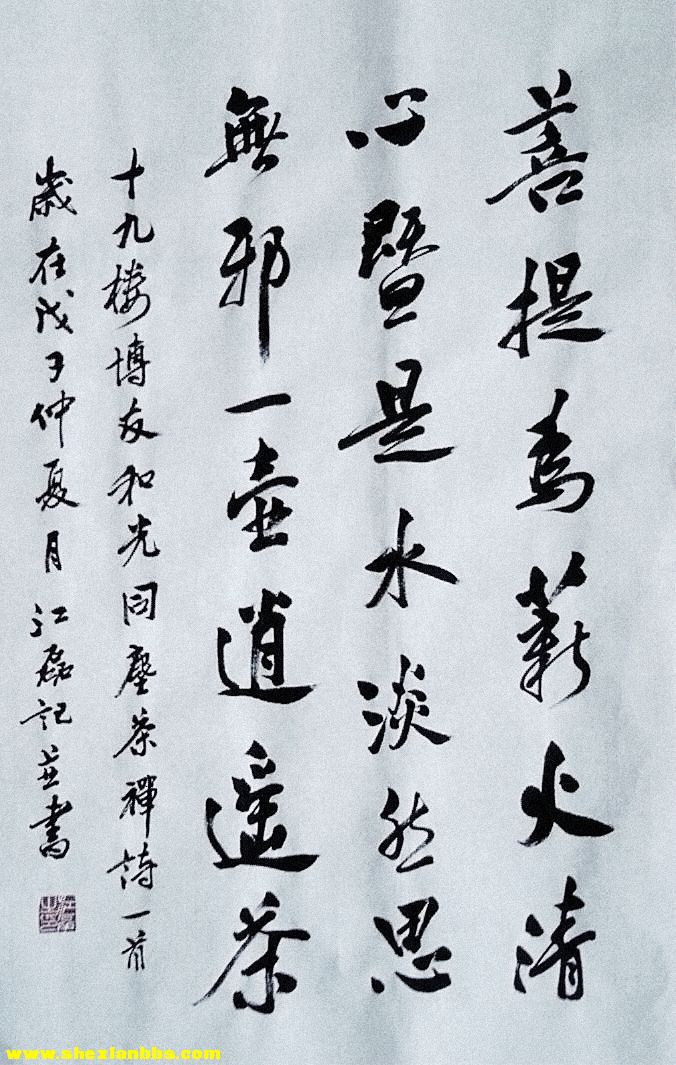 菩提為薪火清
心暨是水淡然思
無邪一壺逍遥茶
十九楼博友和光同塵茶禪詩一首
歲在戊子仲夏月江磊記並書
www.shexianbbs.com